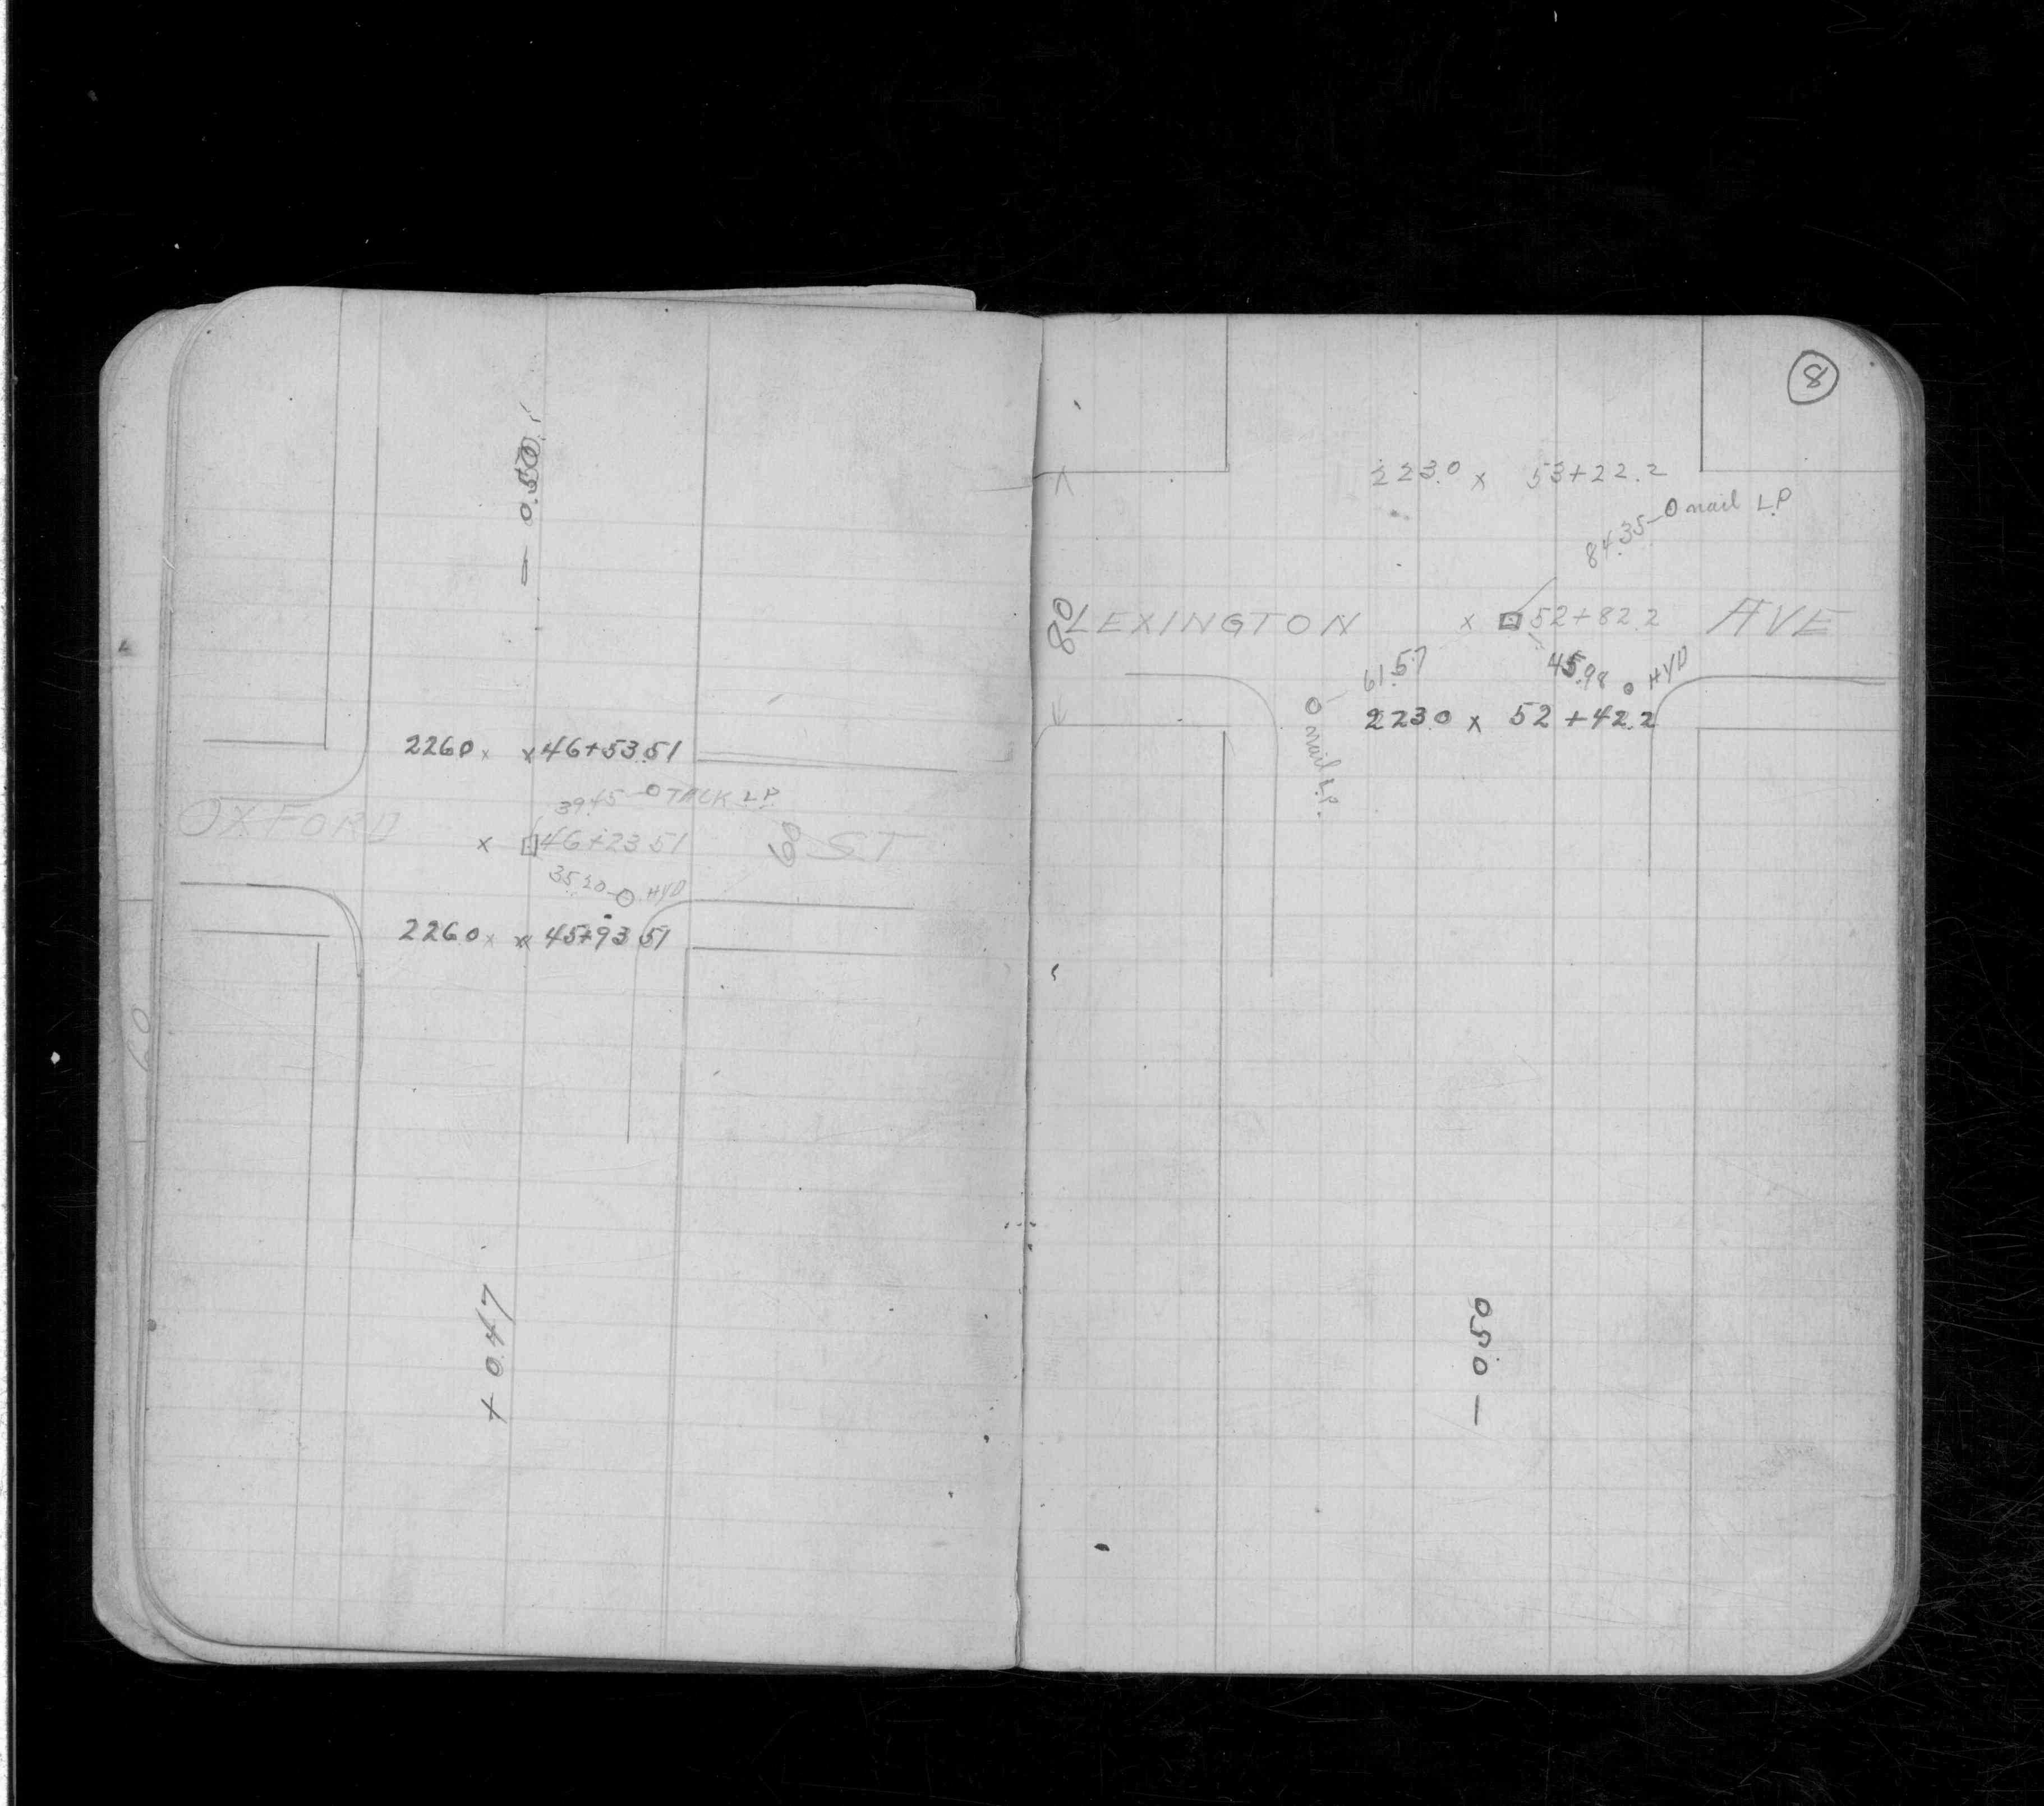 — 0.50
2260 x x 46+53.51
39.45 O TACK L.P.
OXFORD x 46+23.51 60 ST
35.20 O HYD
2260 x x 45+93.51
+ 0.47
60
8
223.0 x 53+22.2
84.35 O nail L.P
80 LEXINGTON x 52+82.2 AVE
61.57 45.98 O HYD
O nail L.P.
223.0 x 52+42.2
0.50 —